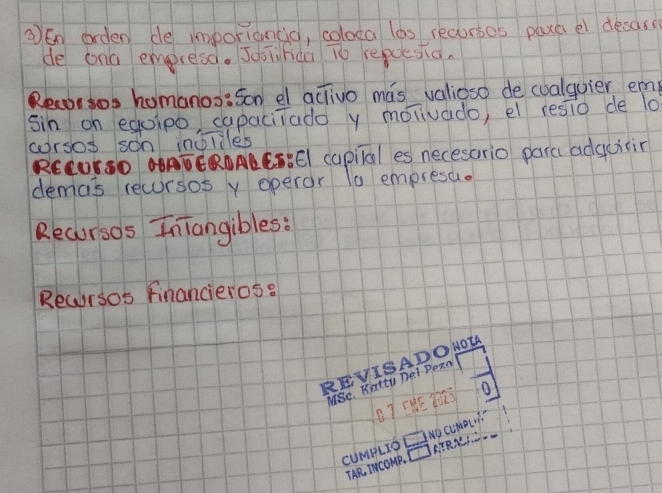 3) En orden de imporiancia, coloca los recursos para el desarro
de ona empresa. Jostifica To repoesta.
Recorsos homanos: Son el activo más valioso de coalquier emp
sin on eqoipo, capacitado y motivado, el resto de lo
cursos son inótiles
RECURSO MATEROALES: El capital es necesario para adqoirir
demás recursos y operar la empresa.
Recursos Intangibles:
Recursos Financieros:
REVISADO NOTA
MSc. Katty Del Pozo
07 ENE 2025
CUMPLIÓ NO CUMPLIÓ
TAR. INCOMP.